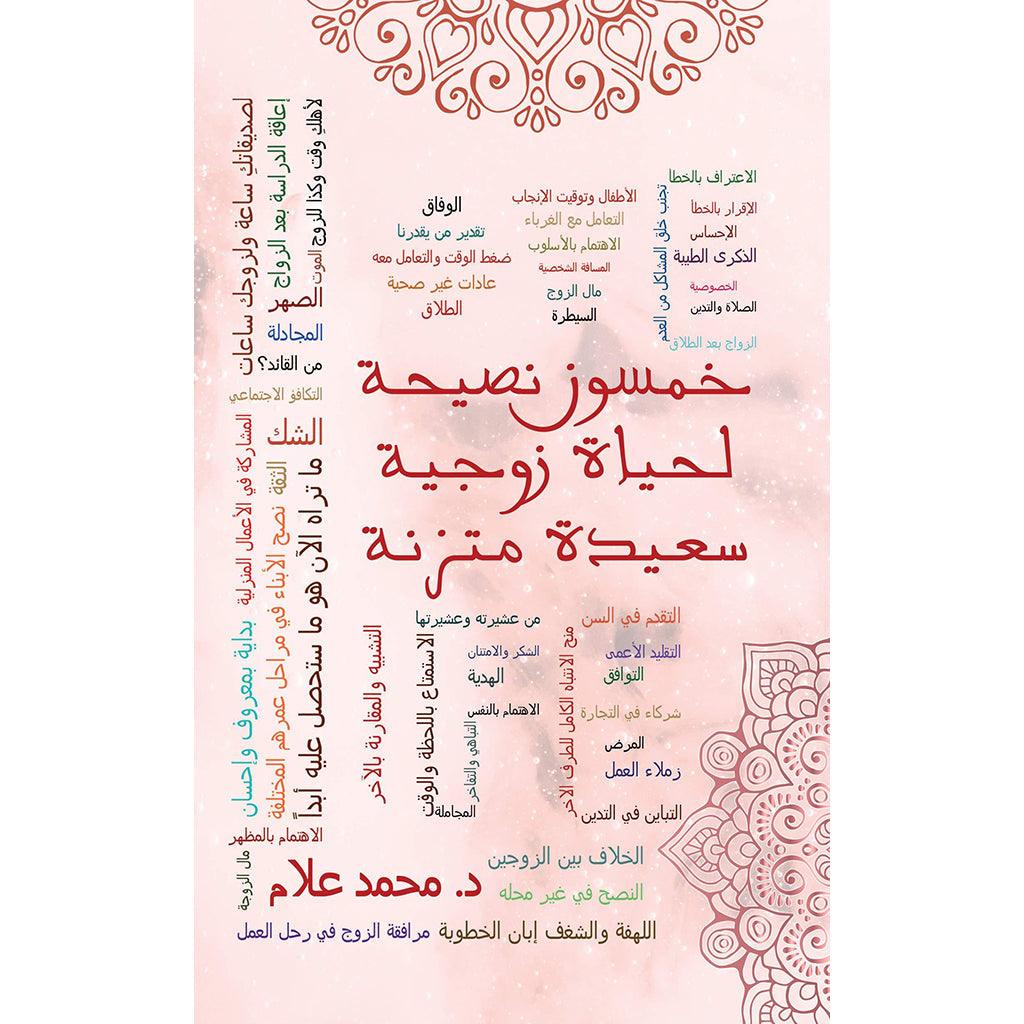 الاعتراف بالخطأ
الإقرار بالخطأ
الإحساس
الذكرى الطيبة
الخصوصية
الصلاة والتدين
الزواج بعد الطلاق
تجنب خلق المشاكل من العدم
الأطفال وتوقيت الإنجاب
التعامل مع الغرباء
الاهتمام بالأسلوب
المسافة الشخصية
مال الزوج
السيطرة
الوفاق
تقدير من يقدرنا
ضغط الوقت والتعامل معه
عادات غير صحية
الطلاق
لأهلكِ وقت وكذا للزوج
الموت
إعاقة الدراسة بعد الزواج
لصديقاتكِ ساعة ولزوجك ساعات
الصهر
المجادلة
من القائد؟
التكافؤ الاجتماعي
الشك
خمسون نصيحة
لحياة زوجية
سعيدة متزنة
ما تراه الآن هو ما ستحصل عليه أبداً
الثقة
نصح الأبناء في مراحل عمرهم المختلفة
المشاركة في الأعمال المنزلية
بداية بمعروف وإحسان
التقدم في السن
التقليد الأعمى
التوافق
شركاء في التجارة
المرض
زملاء العمل
التباين في التدين
منح الانتباه الكامل للطرف الآخر
من عشيرته وعشيرتها
الشكر والامتنان
الهدية
الاهتمام بالنفس
التباهي والتفاخر
المجاملة
الاستمتاع باللحظة والوقت
التشبيه والمقارنة بالآخر
الاهتمام بالمظهر
مال الزوجة
الخلاف بين الزوجين
النصح في غير محله
د. محمد علام
اللهفة والشغف إبان الخطوبة
مرافقة الزوج في رحل العمل